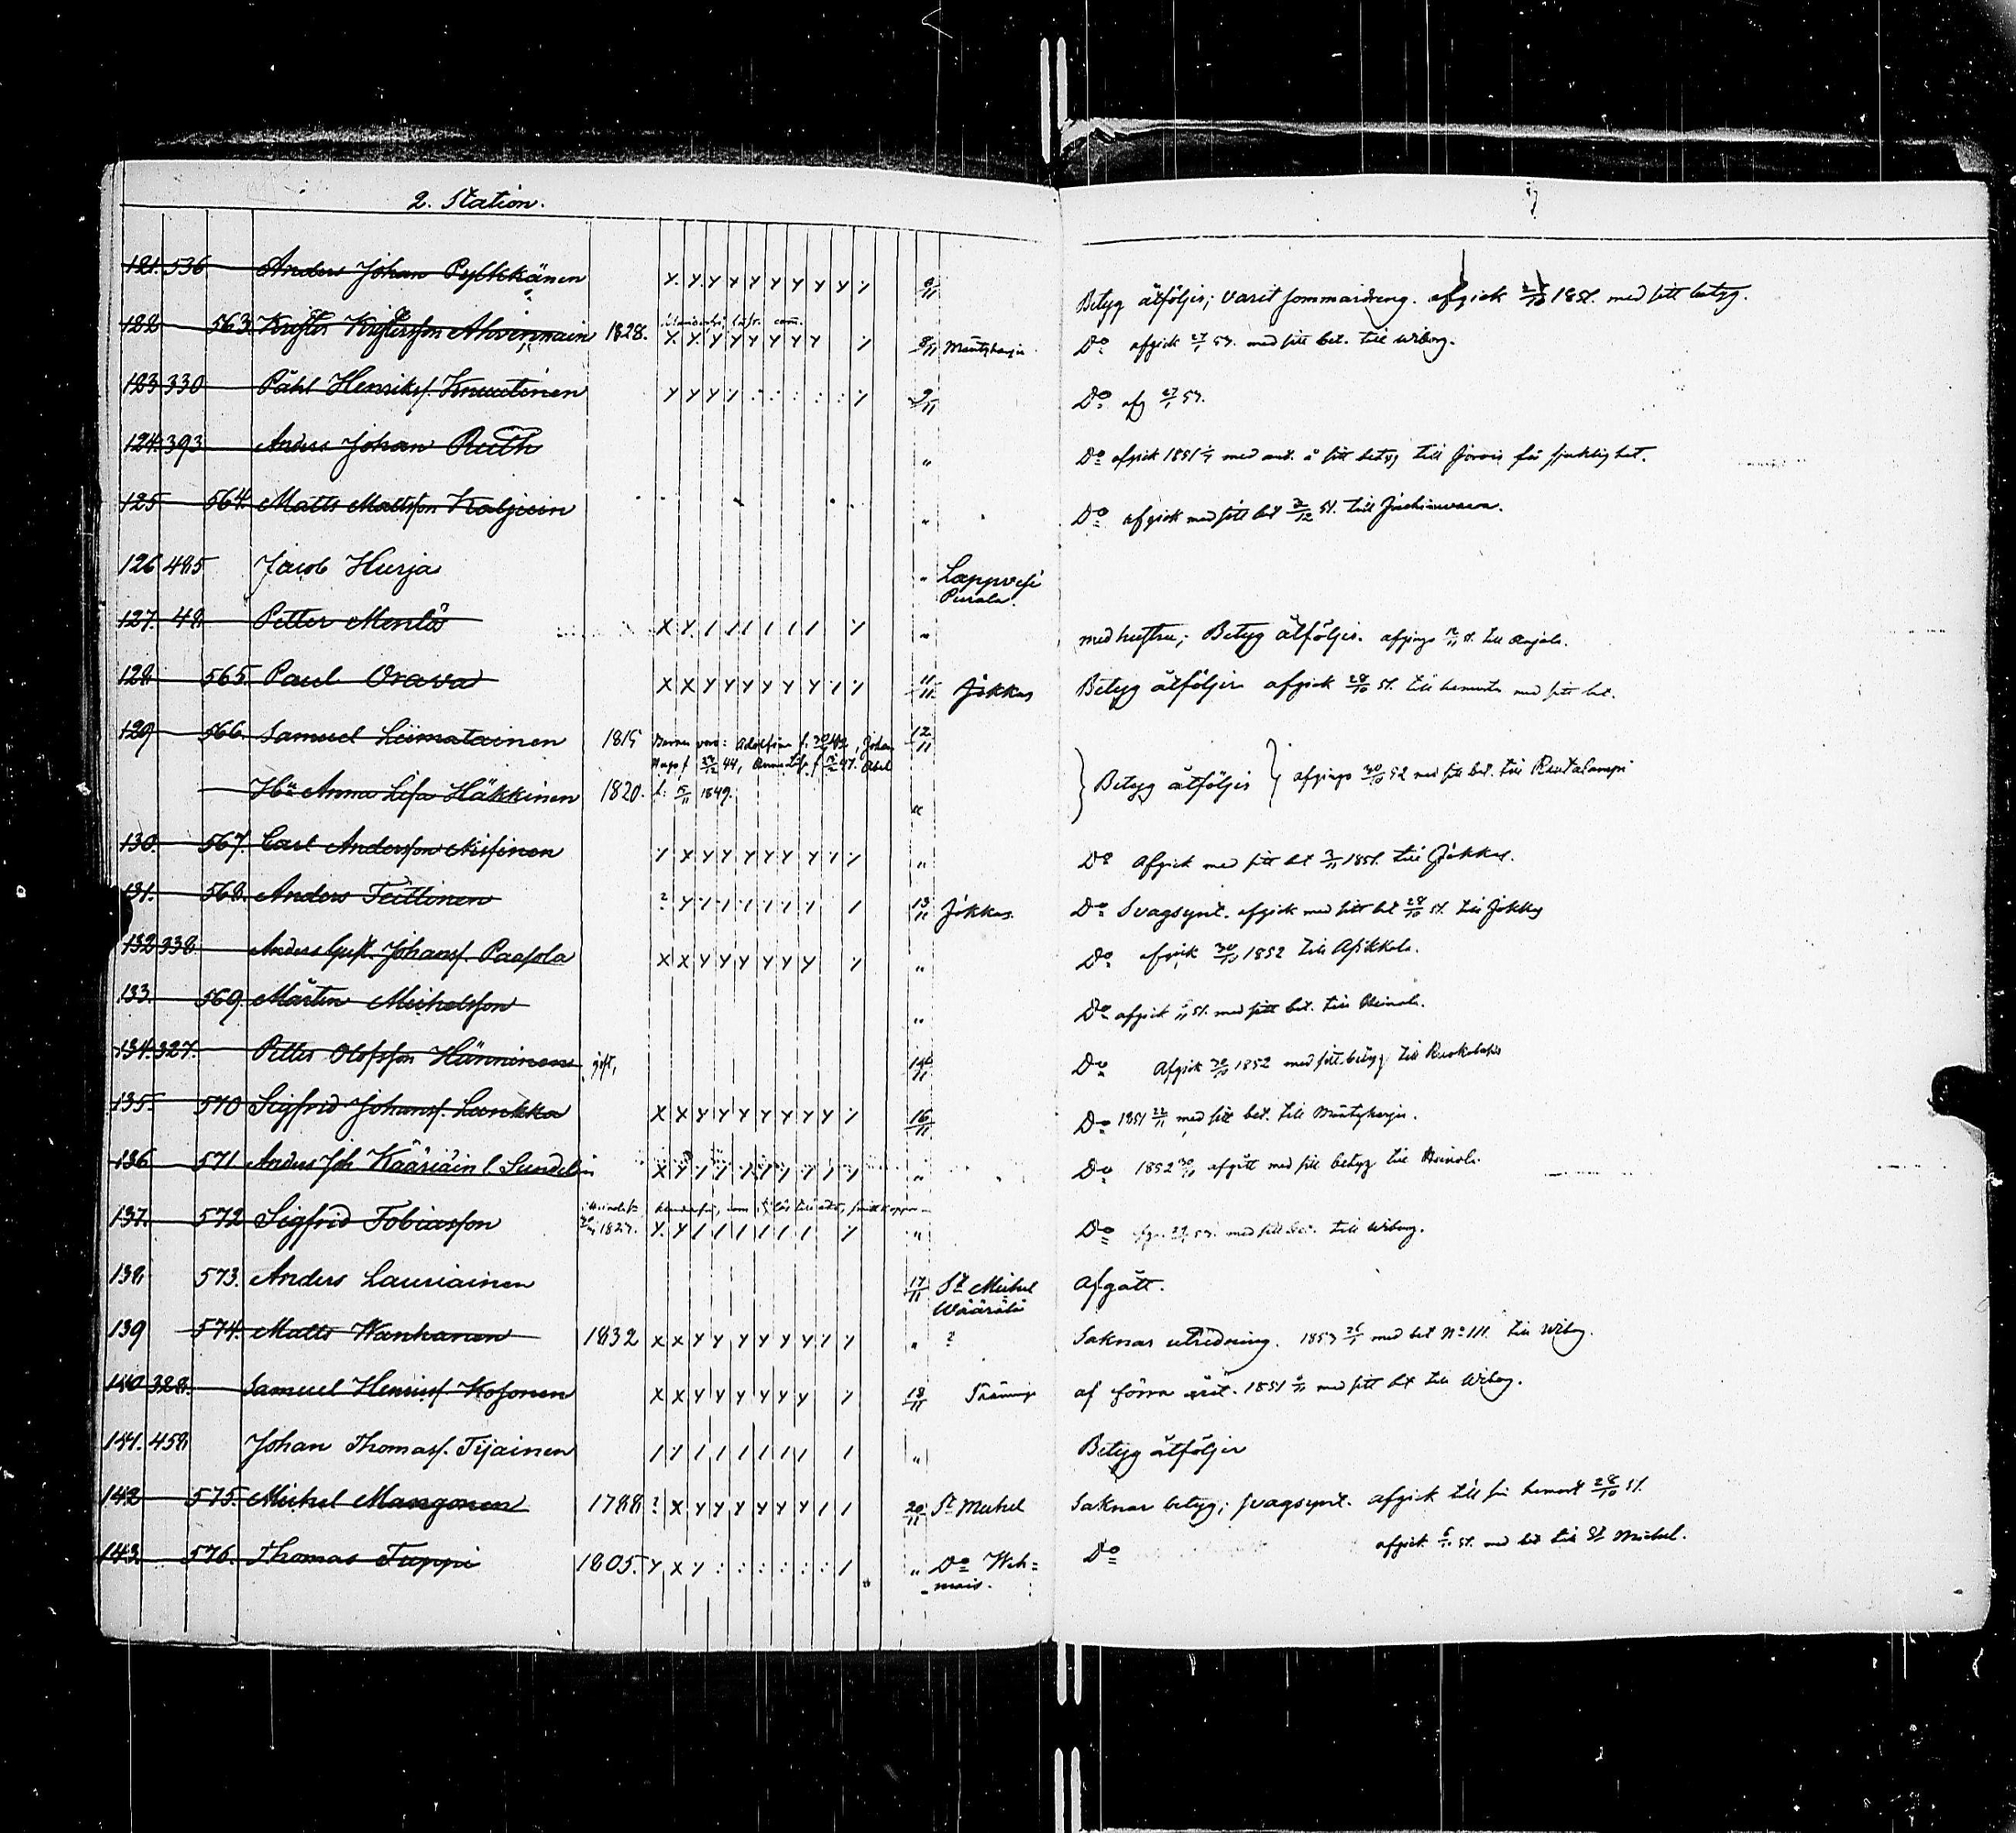 2. Station.
121. 536 Anders Johan Pylkkänen 8/11 Betyg åtföljer; varit sommardreng. afgick 1851. med sitt betyg.
122 563. Krister Kristersson Ahvennain 1828. 8/11 Mäntyharju Do afgick 27/1 53. med sitt bet. till Wiborg.
123 330 Påhl Henriks. Knuutinen 9/11 Do afg 27/1 53.
124. 393 Anders Johan Ruth " Do afgick 1851 med sitt betyg till Jorois för sjuklighet.
125 564. Matts Mattsson Kaljuin " Do afgick med sitt bet 51. till
126 485 Jacob Hurja " Lappvesi
127. 48 Petter Mentä " med hustru; Betyg åtföljer. afgingo till Anjala.
128 565. Paul Orava 11/11 Jokkas Betyg åtföljer afgick 28/10 51. till hemorten med sitt bet.
129 566. Samuel Liimatainen 1815 Barnen voro: Adolfina f. 42, Johan 12/11
44, Anna Lisa f 47. Abel
Hu Anna Lisa Häkkinen 1820. f. 15/11 1849. " Betyg åtföljer afgingo 30/10 52 med sitt bet. till Rautalampi
130. 567. Carl Andersson Nissinen " Do Afgick med sitt bet 1851. till Jokkas.
131. 568. Anders Teittinen 13/11 Jokkas Do Svagsynt. afgick med sitt bet 28/10 51. till Jokkas
132 338 Anders Gust. Johans. Paasola " Do afgick 30/10 1852 till Asikkala.
133. 569. Mårten Michelsson " Do afgick 51. med sitt bet. till Heinola.
134. 327. Petter Olofsson Hänninen gift, 14/11 Do Afgick 30/10 1852 med sitt betyg till Ruokolahti
135. 570 Sigfrid Johans. Laukka 16/11 Do 1851 med sitt bet. till Mäntyharju.
136 571 Anders Joh Kääriäin l. Sundelin " Do 1852 afgått med sitt betyg till Heinola.
137. 572 Sigfrid Tobiasson 1827. " Do 53. med sitt bet. till Wiborg.
138 573. Anders Lauriainen 17/11 St Michel Afgått.
Wäärälä
139 574. Matts Wanhanen 1832 " ? Saknar utredning. 1853 med bet No 111. till Wiborg.
140 328. Samuel Henrics. Kosonen 18/11 af förra året. 1851 med sitt bet till Wiborg.
141. 458 Johan Thomas. Tijainen " Betyg åtföljer
142 575. Michel Mangonen 1788 20/11 St Michel Saknar betyg; svagsynt. afgick till sin hemort 28/10 51.
143. 576. Thomas Tuppi 1805. " Do Weh= Do afgick 51. med bet till St Michel.
mais.